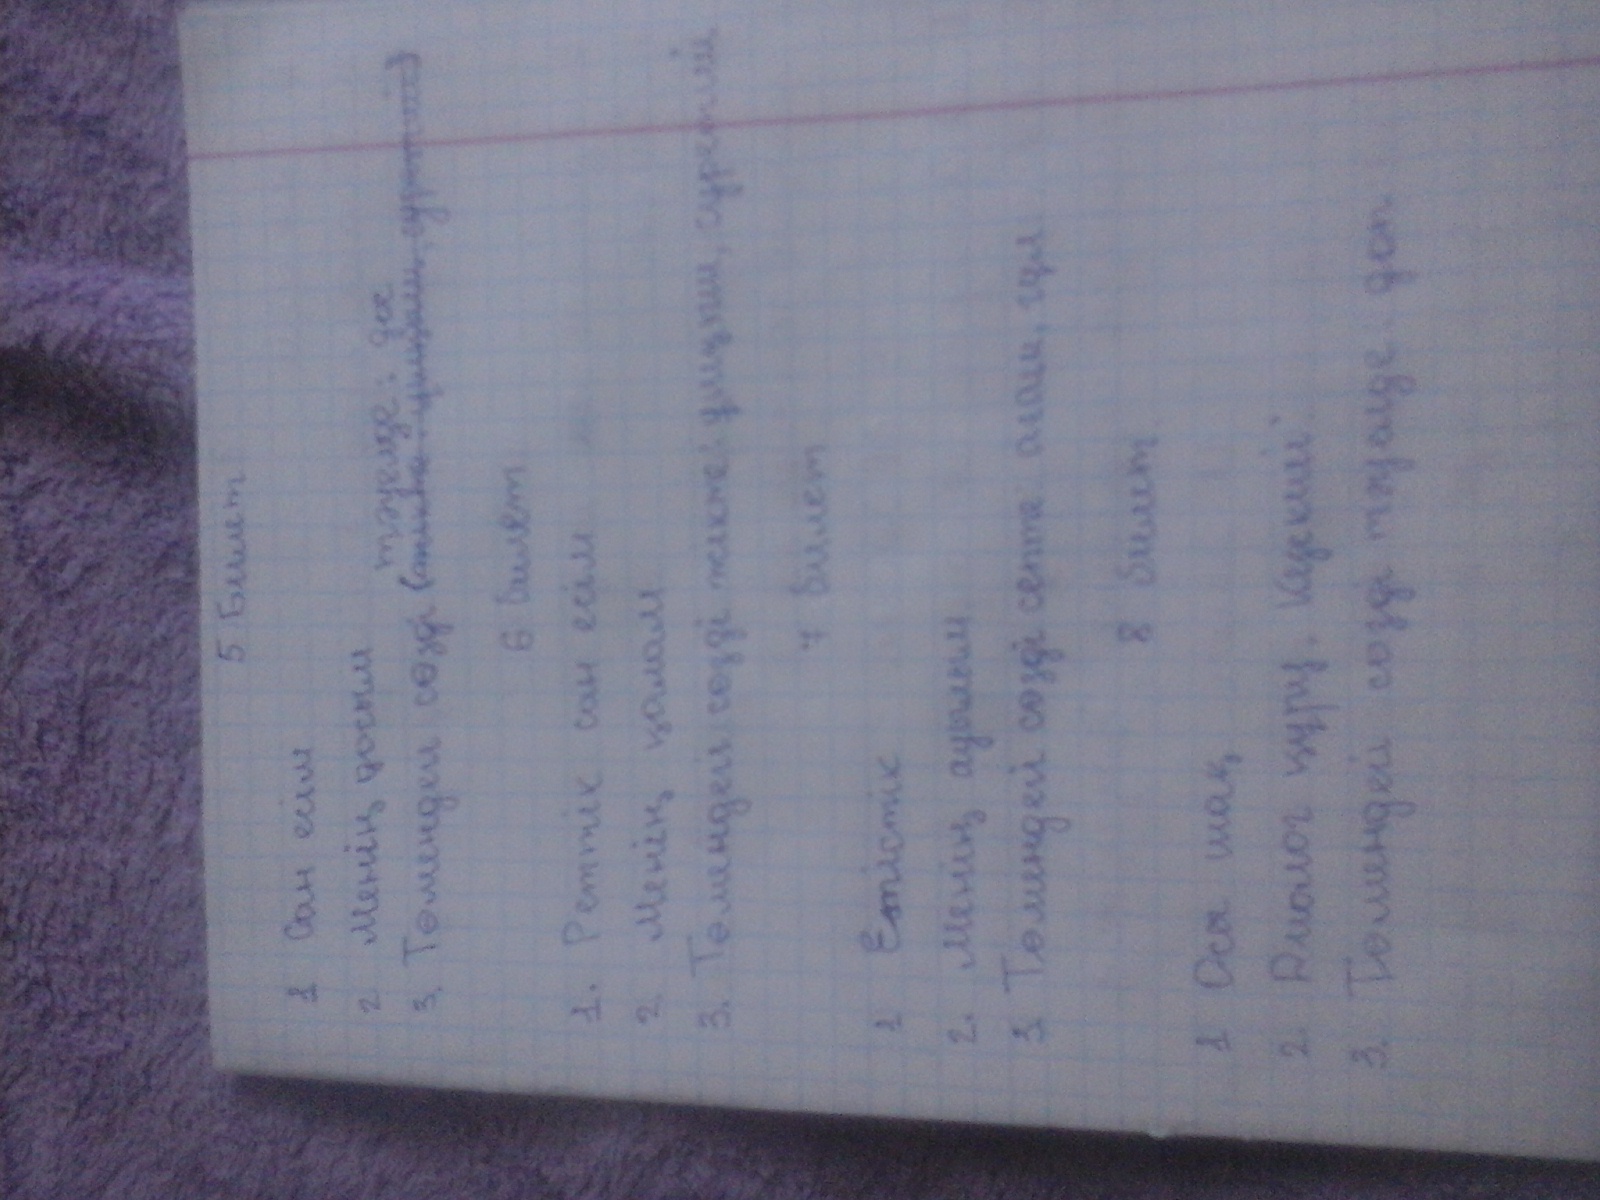 5 Билет
1 Сан есім
2 Менің досым
тәуелде: дос
3. Төмендей сөзді (жікте: ұшқыш, суретші)
6 билет
1. Реттік сан есім
2 Менің қалам
3. Төмендей сөзді жікте: ұшқыш, суретші
7 билет
1 Етістік
2. Менің ауылым
3 Төмендей сөзді септе: ағаш, гүл
8 билет
1 Осы шақ
2. Диолог құру.
3. Төмендей сөзді тәуелде: доп